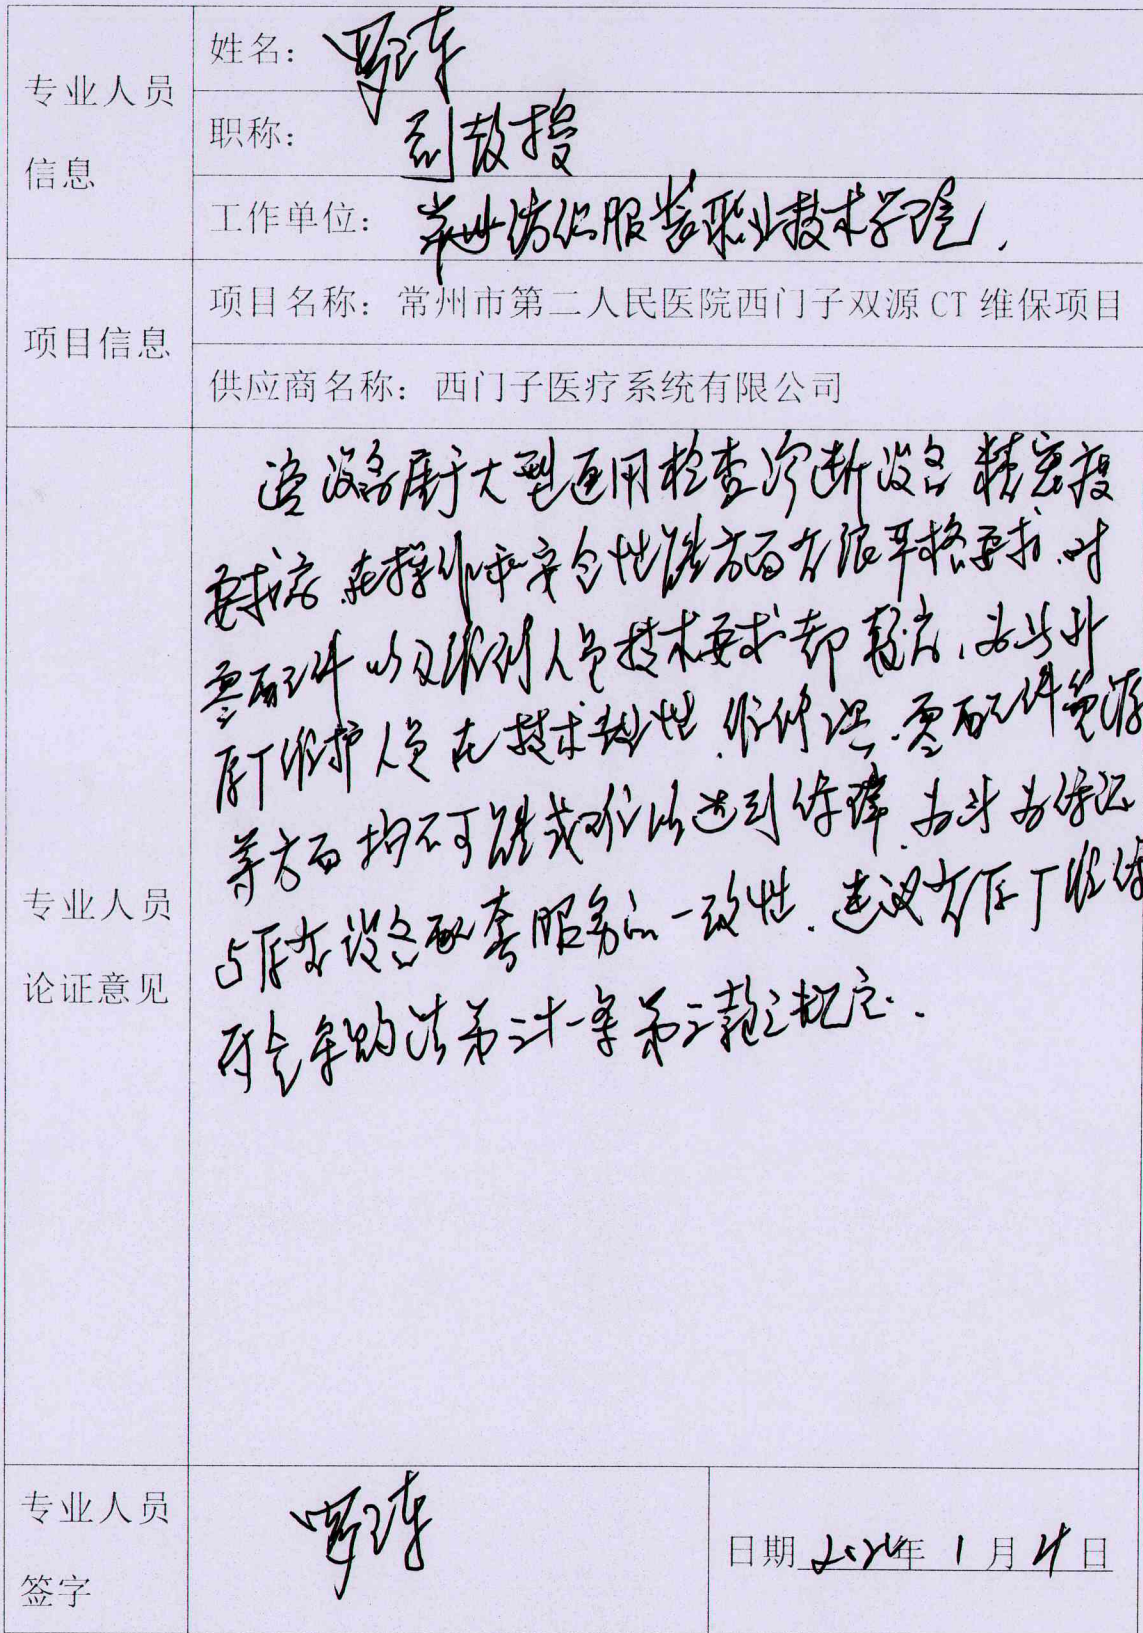 专业人员
信息
姓名：
职称： 副教授
工作单位： 常州纺织服装职业技术学院.
项目信息
项目名称：常州市第二人民医院西门子双源 CT 维保项目
供应商名称：西门子医疗系统有限公司
专业人员
论证意见
设备属于大型通用检查诊断设备 精密度
要求高 在操作和安全性能方面有很严格要求.对
零配件以及维修人员技术要求都较高,
厂维护人员在技术 零配件
等方面均不可能或难以达到保障 为保证
与原有设备配套服务的一致性. 建议 原厂维保
符合采购法第三十一条第 款之规定.
专业人员
签字
日期 年 1 月 日